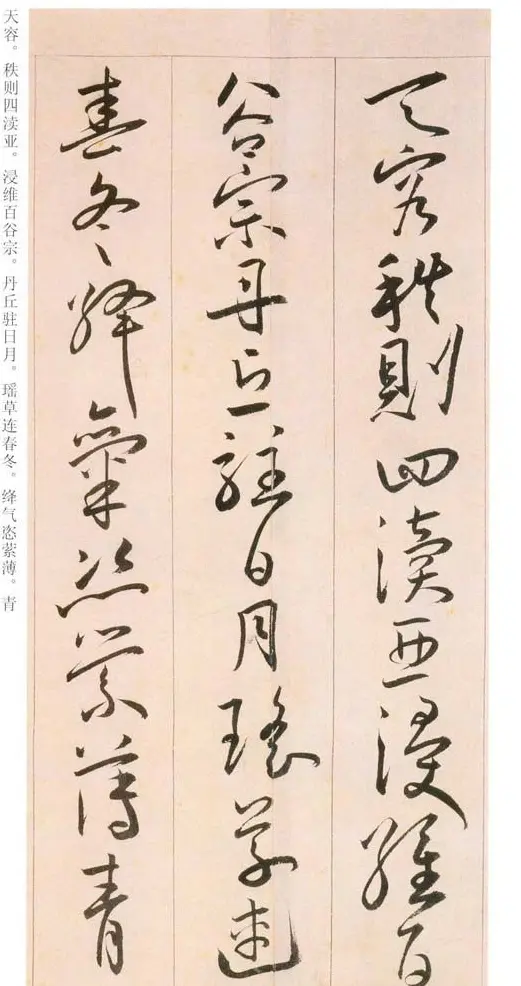 天容。秩则四渎亚。浸维百谷宗。丹丘驻日月。瑶草连春冬。绛气恣萦薄。青
天容秩則四瀆亞浸維百
谷宗丹丘駐日月瑤草連
春冬絳氣恣縈薄青